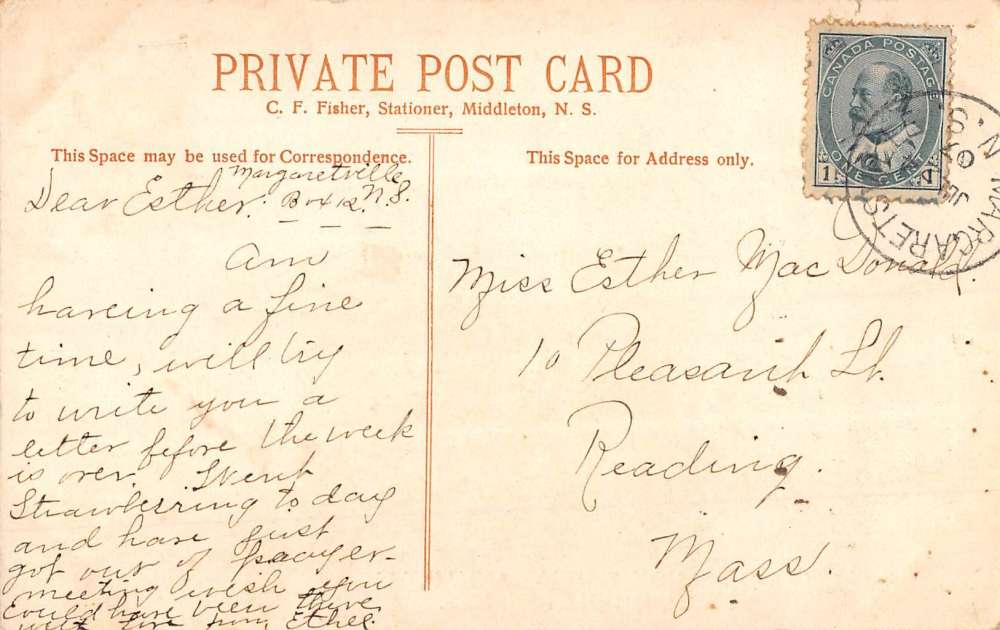 PRIVATE POST CARD
C. F. Fisher, Stationer, Middleton, N. S.
This Space may be used for Correspondence.
Margaretville
Dear Esther. Box 12. N.S.
Am
haveing a fine
time, will try
to write you a
letter before the week
is over. Went
Strawberring to day
and have just
got out of prayer-
meeting wish you
could have been there
with love from, Ethel.
This Space for Address only.
Miss Esther MacDonald.
10 Pleasant St.
Reading.
Mass.
CANADA POSTAGE
1 1
ONE CENT
MARGARETS N.S.
07